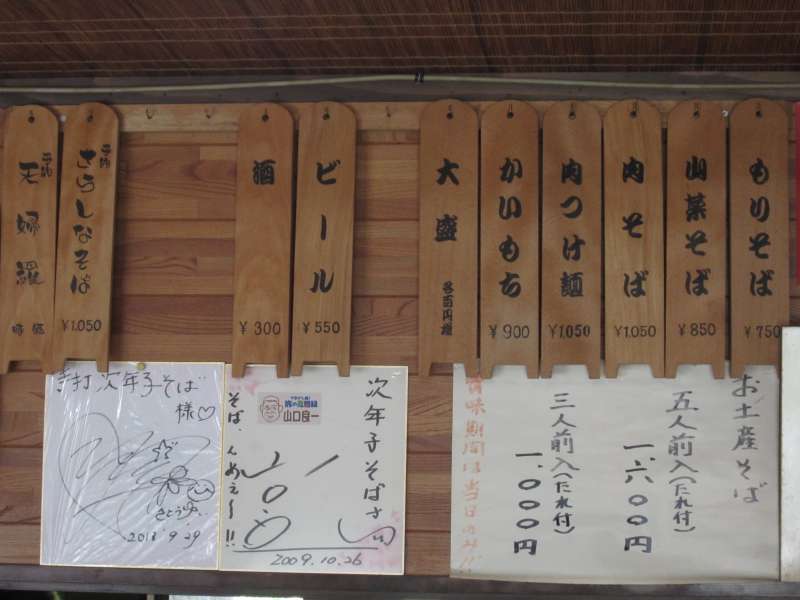 もりそば
¥750
山菜そば
¥850
肉そば
¥1.050
肉つけ麺
¥1.050
かいもち
¥900
大盛
各百円増
ビール
¥550
酒
¥300
手打
さらしなそば
¥1.050
季節
天婦羅
時価
お土産そば
五人前入(たれ付)
一、六〇〇円
三人前入(たれ付)
一、〇〇〇円
賞味期間は当日のみ!!
次年子そばさん
山口良一
そば、んめぇ〜!!
2009.10.26
手打 次年子そば
様♡
2013.9.29